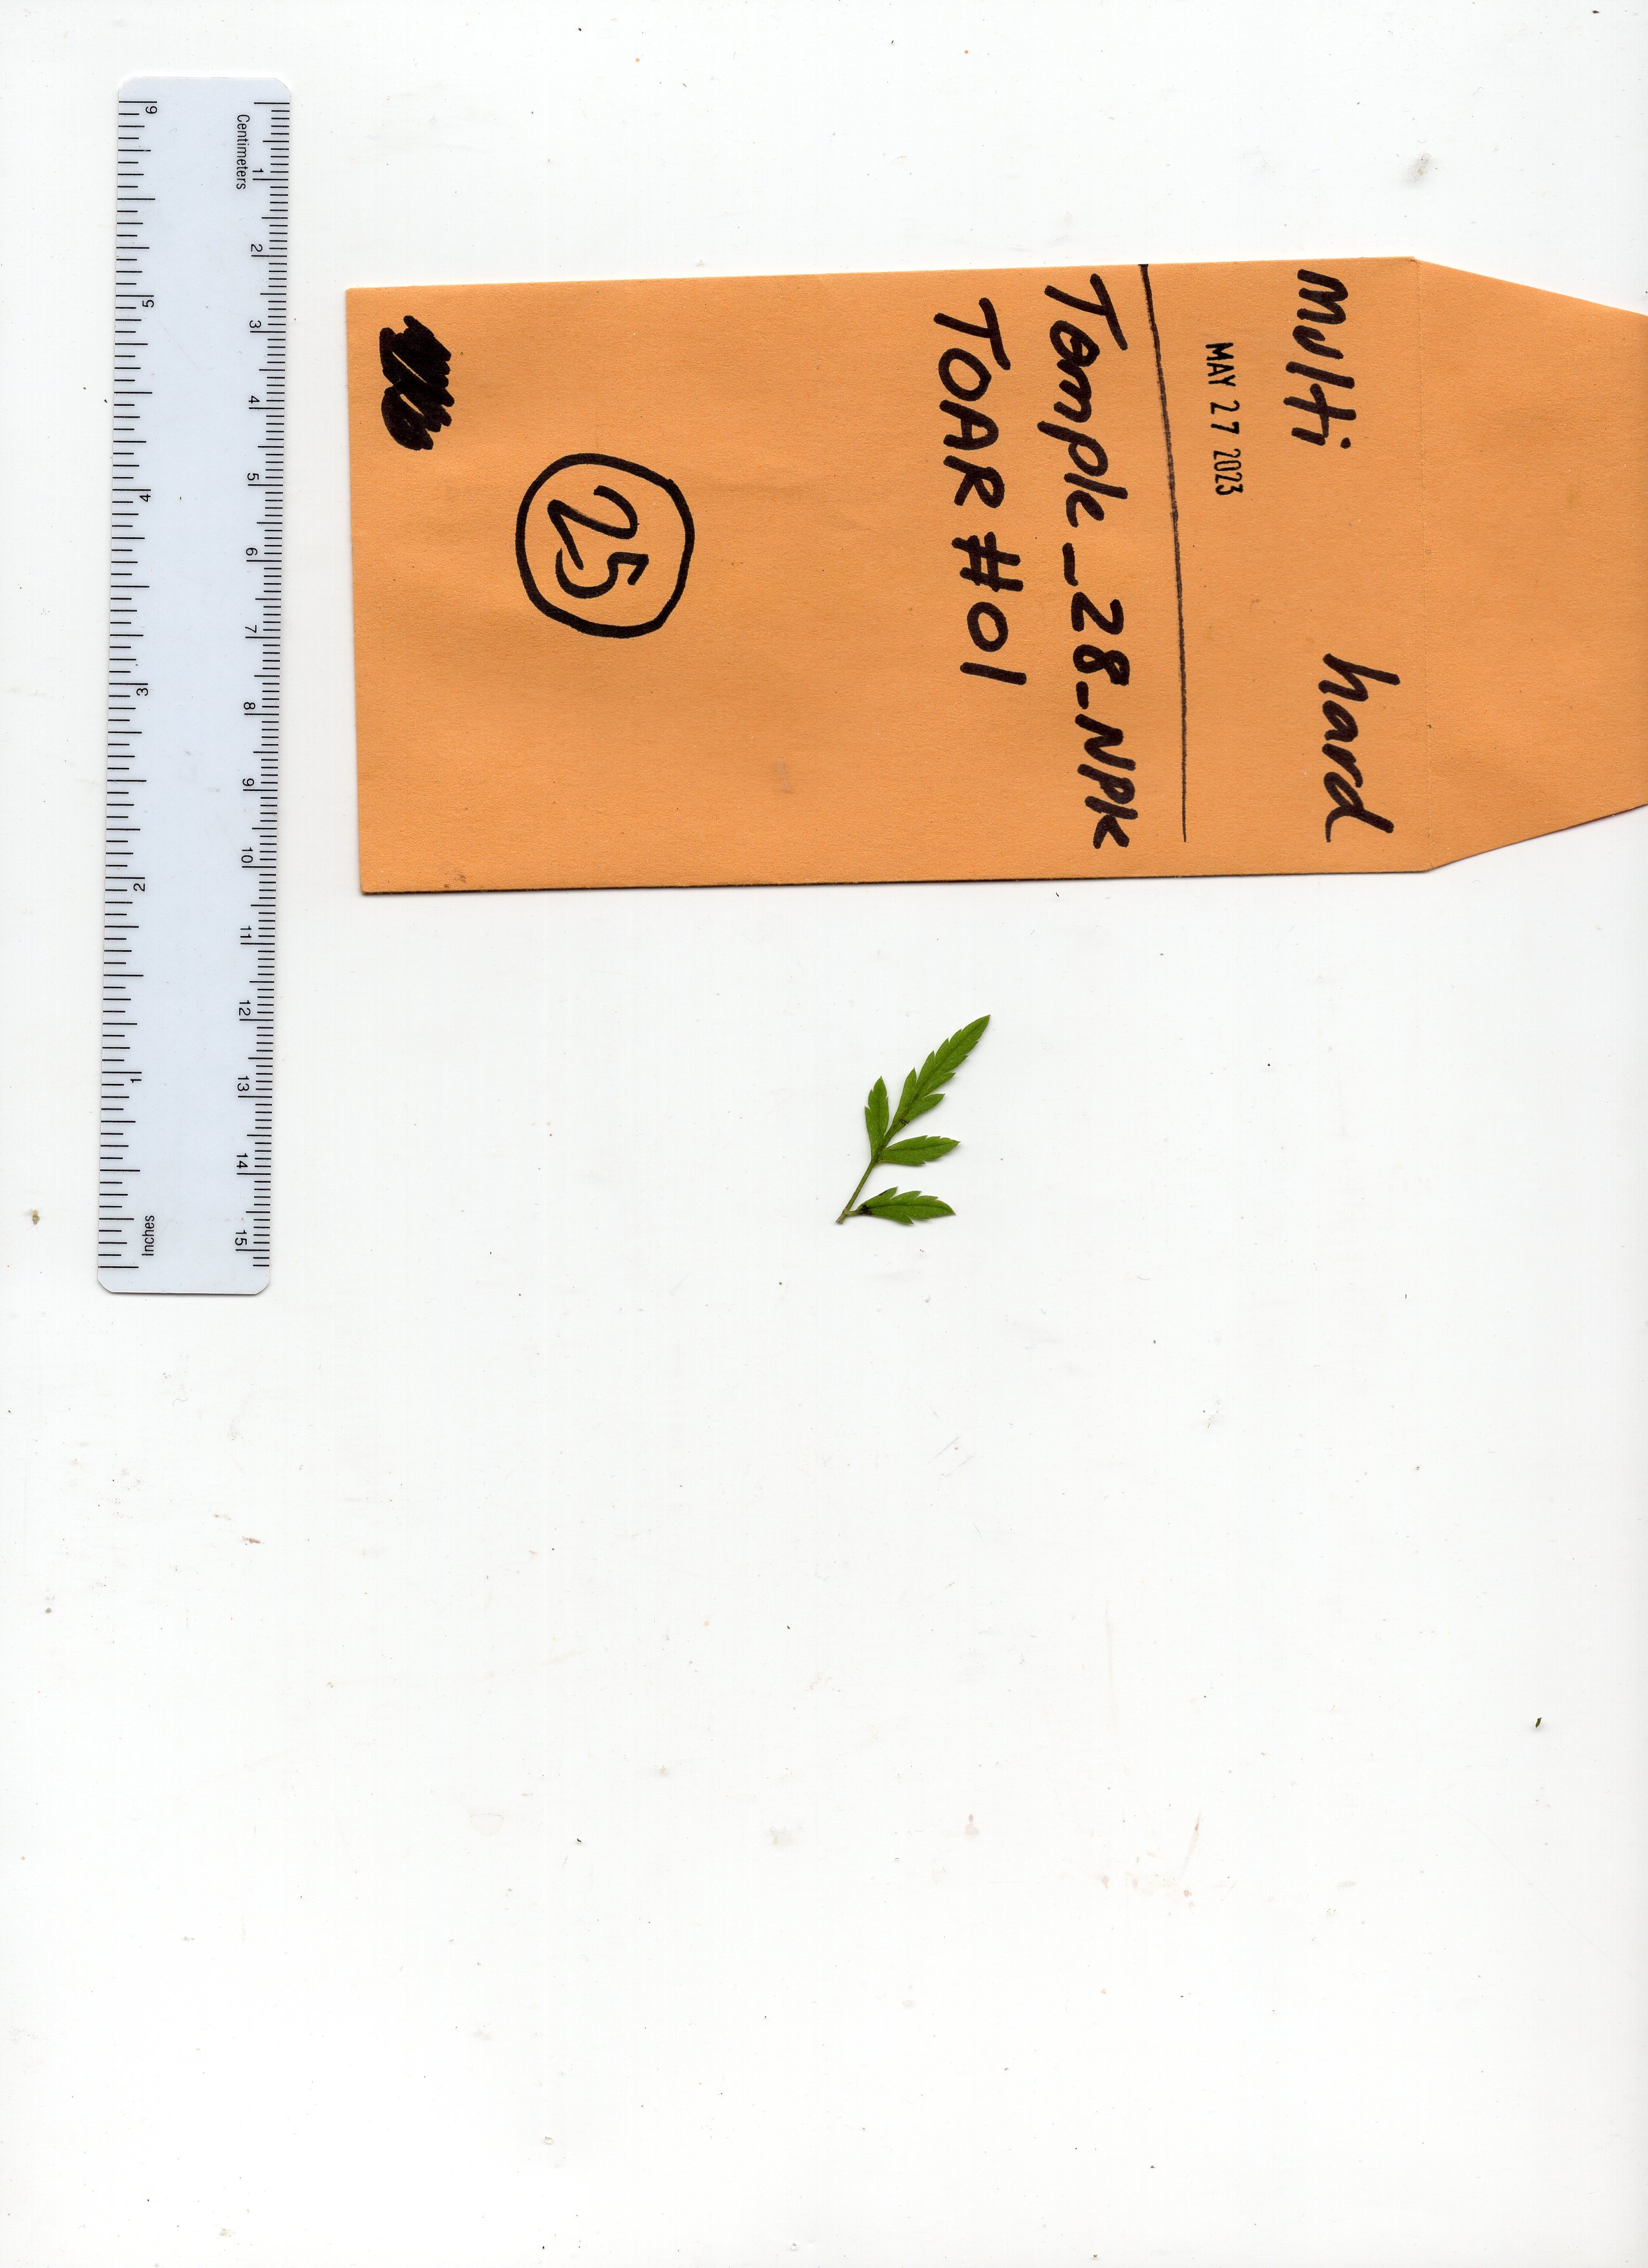 Multi hard
MAY 27 2023
Temple_28_NPK
TOAR #01
25
Centimeters 1 2 3 4 5 6 7 8 9 10 11 12 13 14 15
Inches 1 2 3 4 5 6